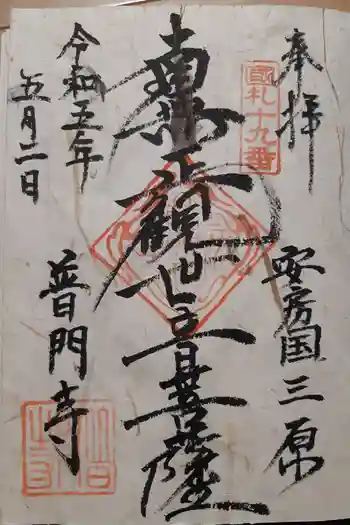 奉拝
安房国三原
國札十九番
南無正観世音菩薩
普門寺
令和五年
五月二日